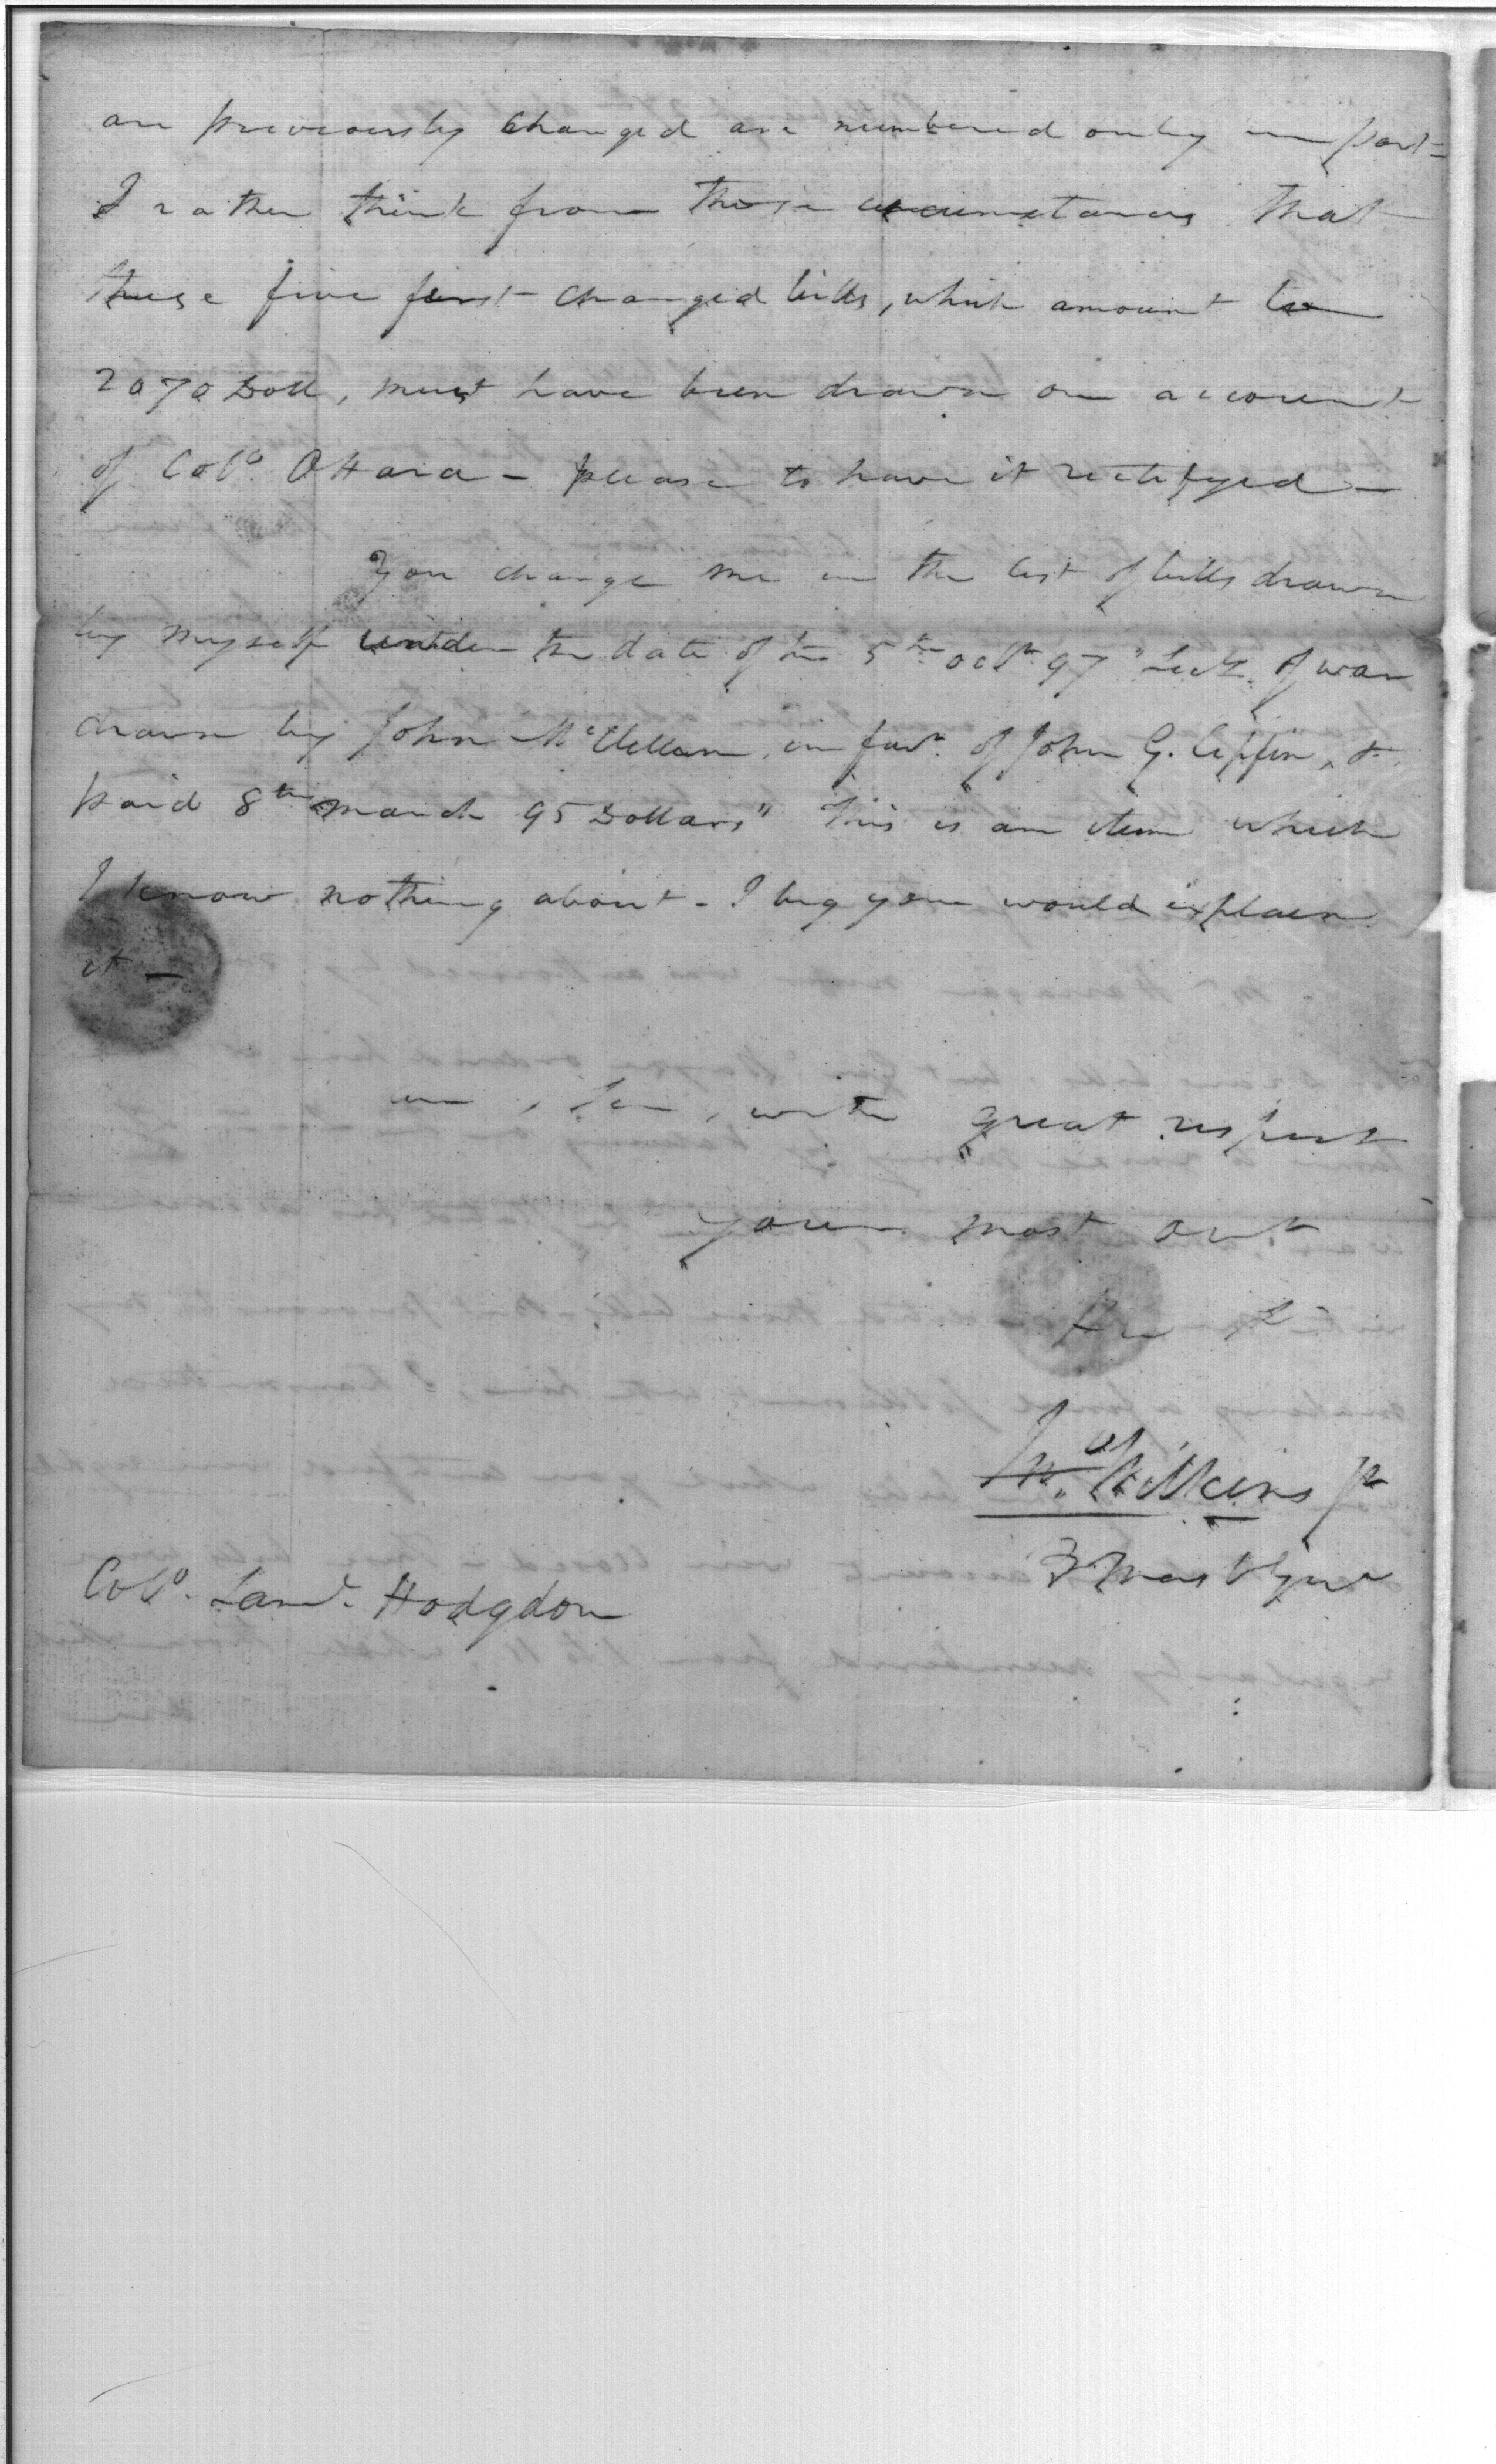 are previously charged are numbered only in part-
I rather think from these circumstances that
these five first charged bills, which amount to
2070 Doll, must have been drawn on account
of Colo. OHara - please to have it rectifyed -
You charge me in the list of bills drawn
by myself under the date of the 5th octr. 97 "Secy. of war
drawn by John McClellan in favr. of John G. &
paid 8th march 95 Dollars" This is an item which
I know nothing about - I beg you would explain
it -
Sir, with great respect
your most obt
Jno. Wilkins jr
Colo. Saml. Hodgdon